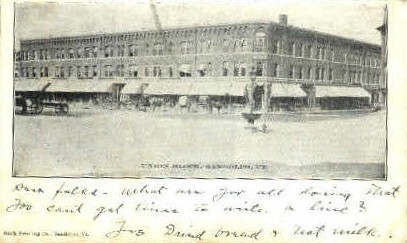 UNION BLOCK, RANDOLPH, VT.
Dear folks - What are you all doing that
you can't get time to write a line?
Joe Dried bread & Hot milk.
Buck Printing Co., Randolph, Vt.